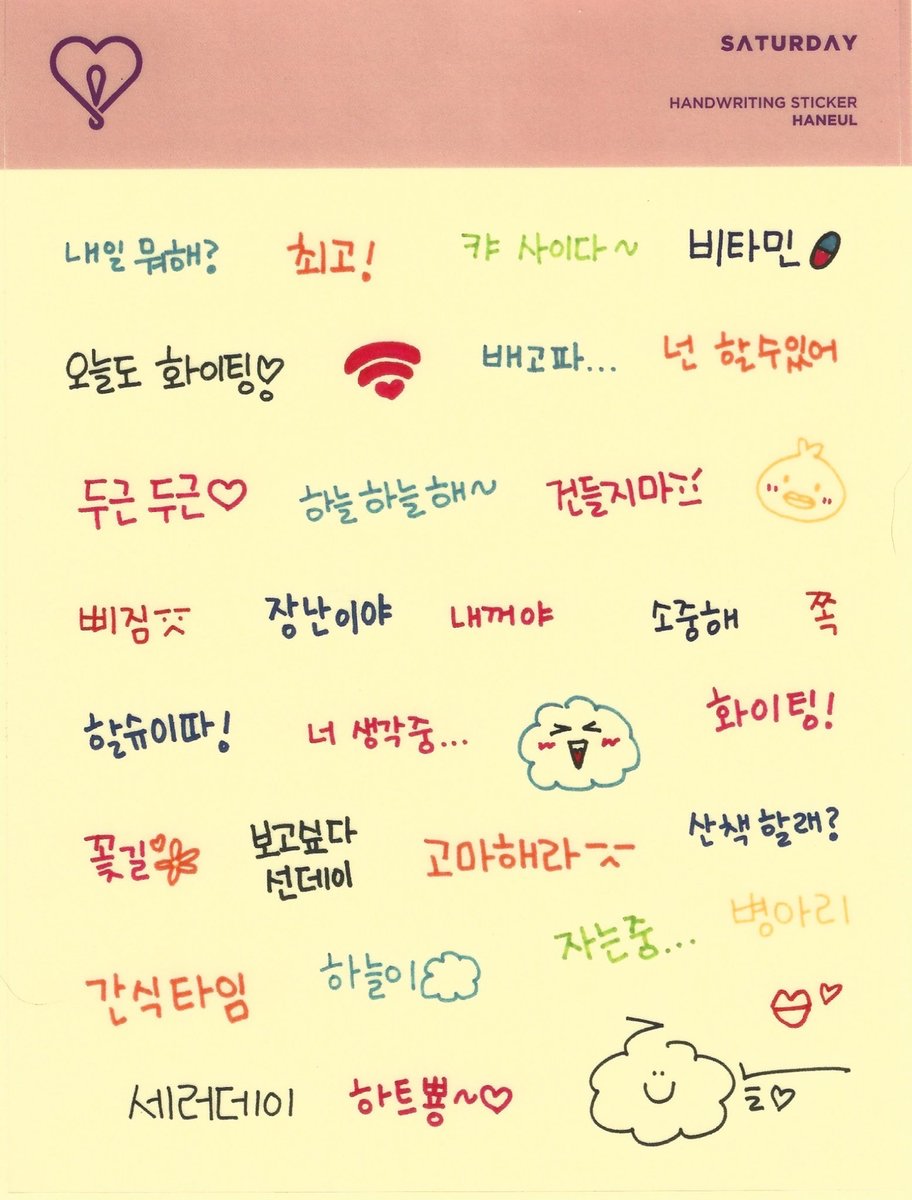 SATURDAY
HANDWRITING STICKER
HANEUL
내일 뭐해?
최고!
캬 사이다~
비타민
오늘도 화이팅♡
배고파...
넌 할수있어
두근 두근♡
하늘하늘해~
건들지마
삐짐
장난이야
내꺼야
소중해
쪽
할슈이따!
너 생각중...
화이팅!
꽃길
보고싶다
선데이
고마해라
산책할래?
병아리
자는중...
하늘이
간식타임
세러데이
하트뿅~♡